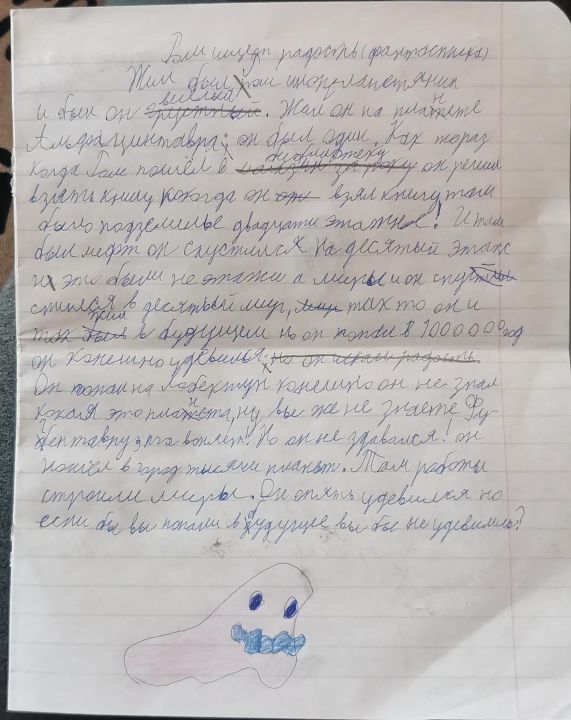 Том ищет радость (фантастика)
Жил был том инопланетянин
и был он весёлый. Жил он на планете
Альфацинтавра; он был один. Как то раз
когда Том пошёл в библиотеку он решил
взять книгу когда он взял книгу там
было подземелье двадцати этажное! И там
был лифт он спустился на десятый этаж
и это были не этажи а миры и он спу
стился в десятый мир, так то он и
жил в будущем но он попал в 1000000 год
он конечно удевился.
Он попал на конечно он не знал
какая это планета, ну вы же не знаете
Но он не здавался! он
пошёл в город тысячи планет. Там работы
строили миры. Он опять удевился но
если бы вы попали в будущее вы бы не удевились?